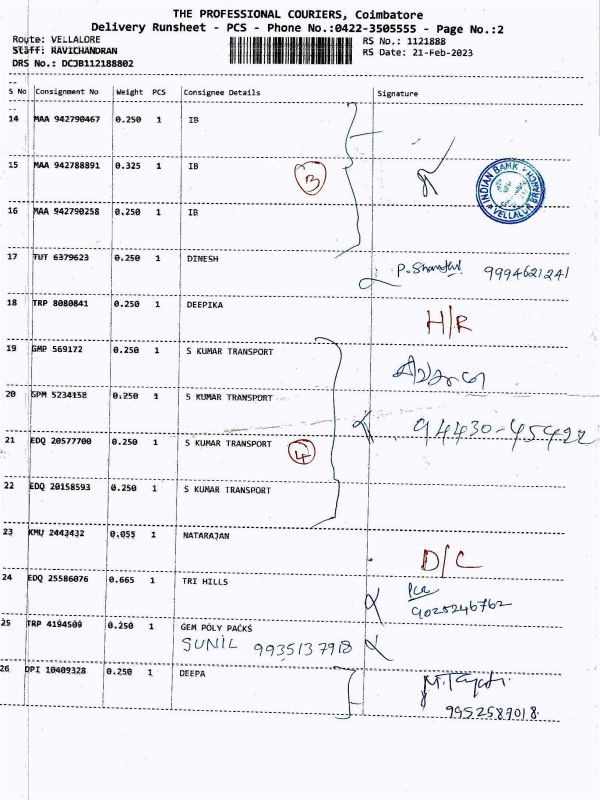 THE PROFESSIONAL COURIERS, Coimbatore
Delivery Runsheet - PCS - Phone No.:0422-3505555 - Page No.:2
Route: VELLALORE
RS No.: 1121888
Staff: RAVICHANDRAN
RS Date: 21-Feb-2023
DRS No.: DCJB112188802
S No Consignment No Weight PCS Consignee Details Signature
14 MAA 942790467 0.250 1 IB
15 MAA 942788891 0.325 1 IB
INDIAN BANK
VELLALUR BRANCH
16 MAA 942790258 0.250 1 IB
17 TUT 6379623 0.250 1 DINESH
9994621241
18 TRP 8080841 0.250 1 DEEPIKA
H/R
19 GMP 569172 0.250 1 S KUMAR TRANSPORT
20 GPM 5234158 0.250 1 S KUMAR TRANSPORT
94430-45422
21 EDQ 20577700 0.250 1 S KUMAR TRANSPORT
4
22 EDQ 20158593 0.250 1 S KUMAR TRANSPORT
23 KMU 2443432 0.055 1 NATARAJAN
D/C
24 EDQ 25586076 0.665 1 TRI HILLS
9025246762
25 TRP 4194509 0.250 1 GEM POLY PACKS
SUNIL 9935137918
26 DPI 10409328 0.250 1 DEEPA
9952587018